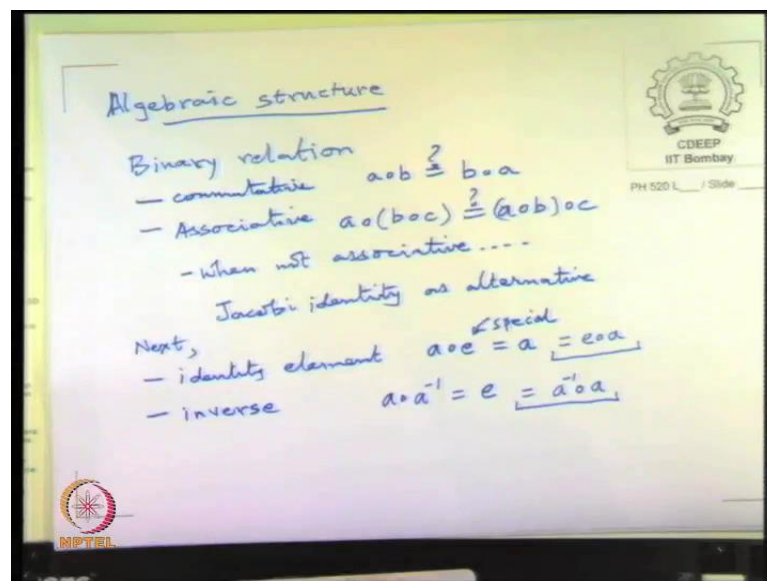 Algebraic structure
Binary relation
— commutative a∘b ≟ b∘a
— Associative a∘(b∘c) ≟ (a∘b)∘c
- when not associative ....
Jacobi identity as alternative
Next,
special
— identity element a∘e = a = e∘a
— inverse a∘a⁻¹ = e = a⁻¹∘a
CDEEP
IIT Bombay
PH 520 L___ / Slide ___
NPTEL